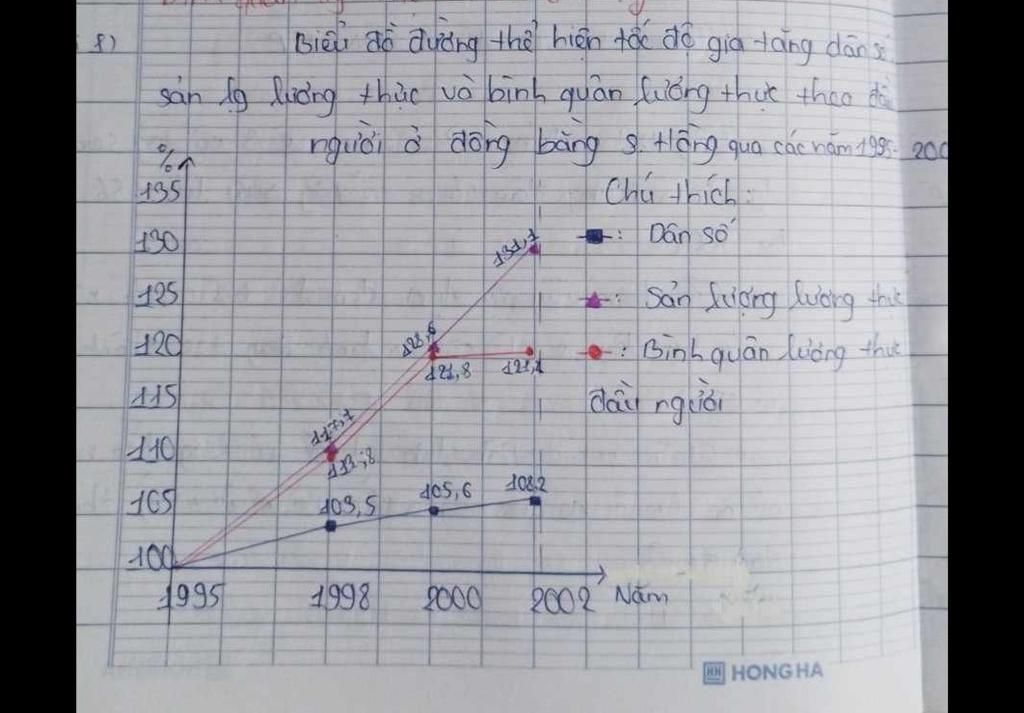 8)
Biểu đồ đường thể hiện tốc độ gia tăng dân số
sản lg lương thực và bình quân lương thực theo đầu
người ở đồng bằng s. Hồng qua các năm 1995-200
%
135
130
125
120
115
110
105
100
1995 1998 2000 2002 Năm
Chú thích:
: Dân số
: Sản lượng lương thực
: Bình quân lương thực
đầu người
131,1
128,6
121,8
121,2
117,7
113,8
103,5
105,6
108,2
HH HONG HA